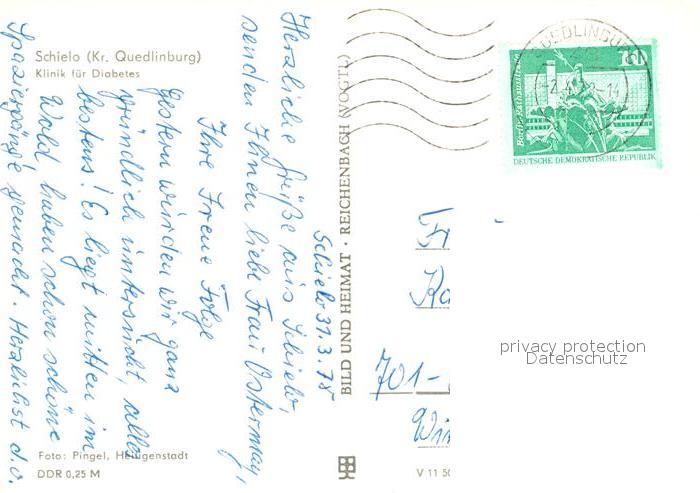 Schielo (Kr. Quedlinburg)
Klinik für Diabetes
Schielo 31.3.78
Herzliche Grüße aus Schielo,
senden Ihnen liebe Frau Ostermay,
Ihre Irene
Gestern wurden wir ganz
gründlich untersucht, alles
bestens! Es liegt mitten im
Wald haben schon schöne
Spaziergänge gemacht. Herzlichst d.o.
Foto: Pingel, Heiligenstadt
DDR 0,25 M
BILD UND HEIMAT · REICHENBACH (VOGTL)
V 11 50
QUEDLINBURG
10
Berlin, Rathausstraße
DEUTSCHE DEMOKRATISCHE REPUBLIK
Fr
701-
privacy protection
Datenschutz